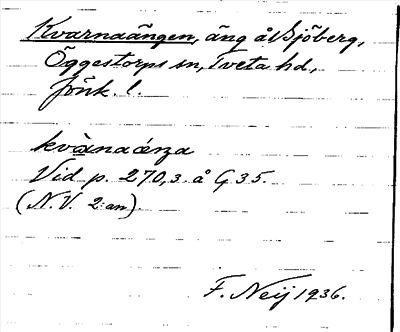 Kvarnaängen, äng å Sjöberg,
Öggestorps sn, Tveta hd,
Jönk. l.
kvànaǽŋa
Vid p. 270,3 å G 35.
(N.V. 2:an).
F. Neij 1936.